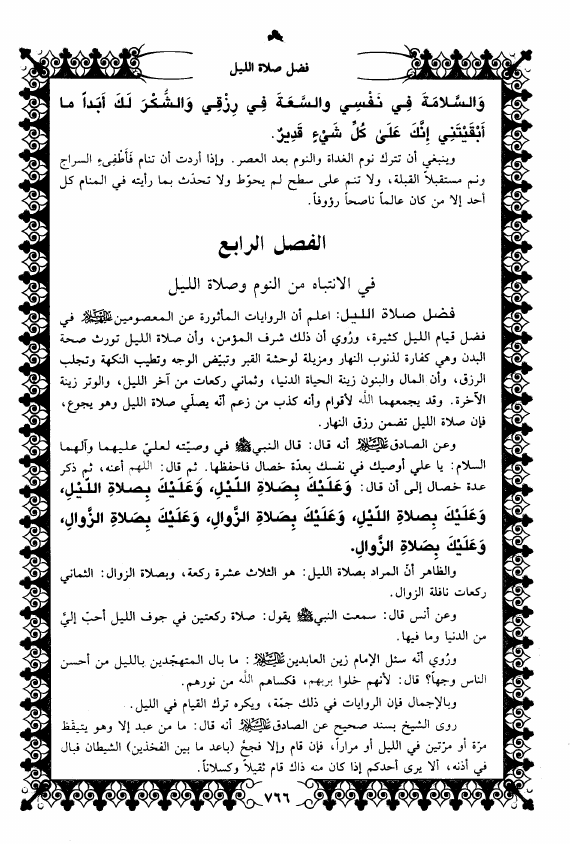 فضل صلاة الليل
وَالسَّلامَةَ فِي نَفْسِي والسَّعَةَ فِي رِزْقِي وَالشُّكْرَ لَكَ أَبَداً ما
أَبْقَيْتَنِي إِنَّكَ عَلَىٰ كُلِّ شَيْءٍ قَدِيرٌ.
وينبغي أن تترك نوم الغداة والنوم بعد العصر. وإذا أردت أن تنام فَأَطْفِىءِ السراج
ونم مستقبلاً القبلة، ولا تنم على سطح لم يحوّط ولا تحدّث بما رأيته في المنام كل
أحد إلا من كان عالماً ناصحاً رؤوفاً.
الفصل الرابع
في الانتباه من النوم وصلاة الليل
فضل صلاة الليل: اعلم أن الروايات المأثورة عن المعصومين عليهم السلام في
فضل قيام الليل كثيرة، ورُوي أن ذلك شرف المؤمن، وأن صلاة الليل تورث صحة
البدن وهي كفارة لذنوب النهار ومزيلة لوحشة القبر وتبيّض الوجه وتطيب النكهة وتجلب
الرزق، وأن المال والبنون زينة الحياة الدنيا، وثماني ركعات من آخر الليل، والوتر زينة
الآخرة. وقد يجمعهما الله لأقوام وأنه كذب من زعم أنّه يصلّي صلاة الليل وهو يجوع،
فإن صلاة الليل تضمن رزق النهار.
وعن الصادق عليه السلام أنه قال: قال النبي ﷺ في وصيّته لعليّ عليهما وآلهما
السلام: يا علي أوصيك في نفسك بعدّة خصال فاحفظها. ثم قال: اللهم أعنه، ثم ذكر
عدة خصال إلى أن قال: وَعَلَيْكَ بِصَلاةِ اللَّيْلِ، وَعَلَيْكَ بِصلاةِ اللَّيْلِ،
وَعَلَيْكَ بِصلاةِ اللَّيْلِ، وَعَلَيْكَ بِصَلاةِ الزَّوالِ، وَعَلَيْكَ بِصَلاةِ الزَّوالِ،
وَعَلَيْكَ بِصَلاةِ الزَّوالِ.
والظاهر أنّ المراد بصلاة الليل: هو الثلاث عشرة ركعة، وبصلاة الزوال: الثماني
ركعات نافلة الزوال.
وعن أنس قال: سمعت النبي ﷺ يقول: صلاة ركعتين في جوف الليل أحبّ إليَّ
من الدنيا وما فيها.
ورُوي أنّه سئل الإمام زين العابدين عليه السلام: ما بال المتهجّدين بالليل من أحسن
الناس وجهاً؟ قال: لأنهم خلوا بربهم، فكساهم الله من نورهم.
وبالإجمال فإن الروايات في ذلك جمّة، ويكره ترك القيام في الليل.
روى الشيخ بسند صحيح عن الصادق عليه السلام أنه قال: ما من عبد إلا وهو يتيقّظ
مرّة أو مرّتين في الليل أو مراراً، فإن قام وإلا فجحّ (باعد ما بين الفخذين) الشيطان فبال
في أذنه، ألا يرى أحدكم إذا كان منه ذاك قام ثقيلاً وكسلاناً.
٧٦٦